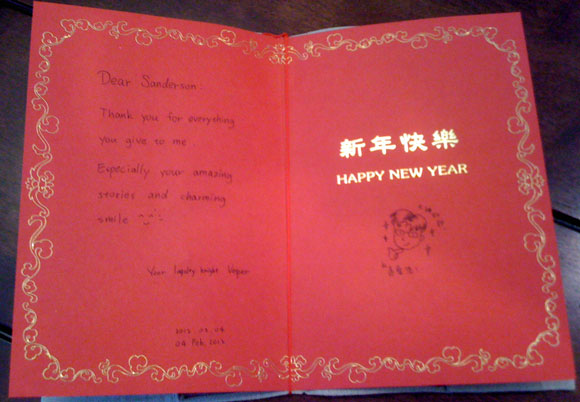 Dear Sanderson:
Thank you for everything
you give to me.
Especially your amazing
stories and charming
smile
Your loyalty knight
04 Feb, 2013
新年快樂
HAPPY NEW YEAR